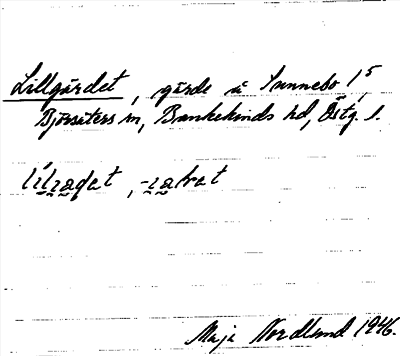 Lillgärdet, gärde å Sunnebo 1⁵,
Björsäters sn, Bankekinds hd, Östg. l.
Maja Nordlund 1946.